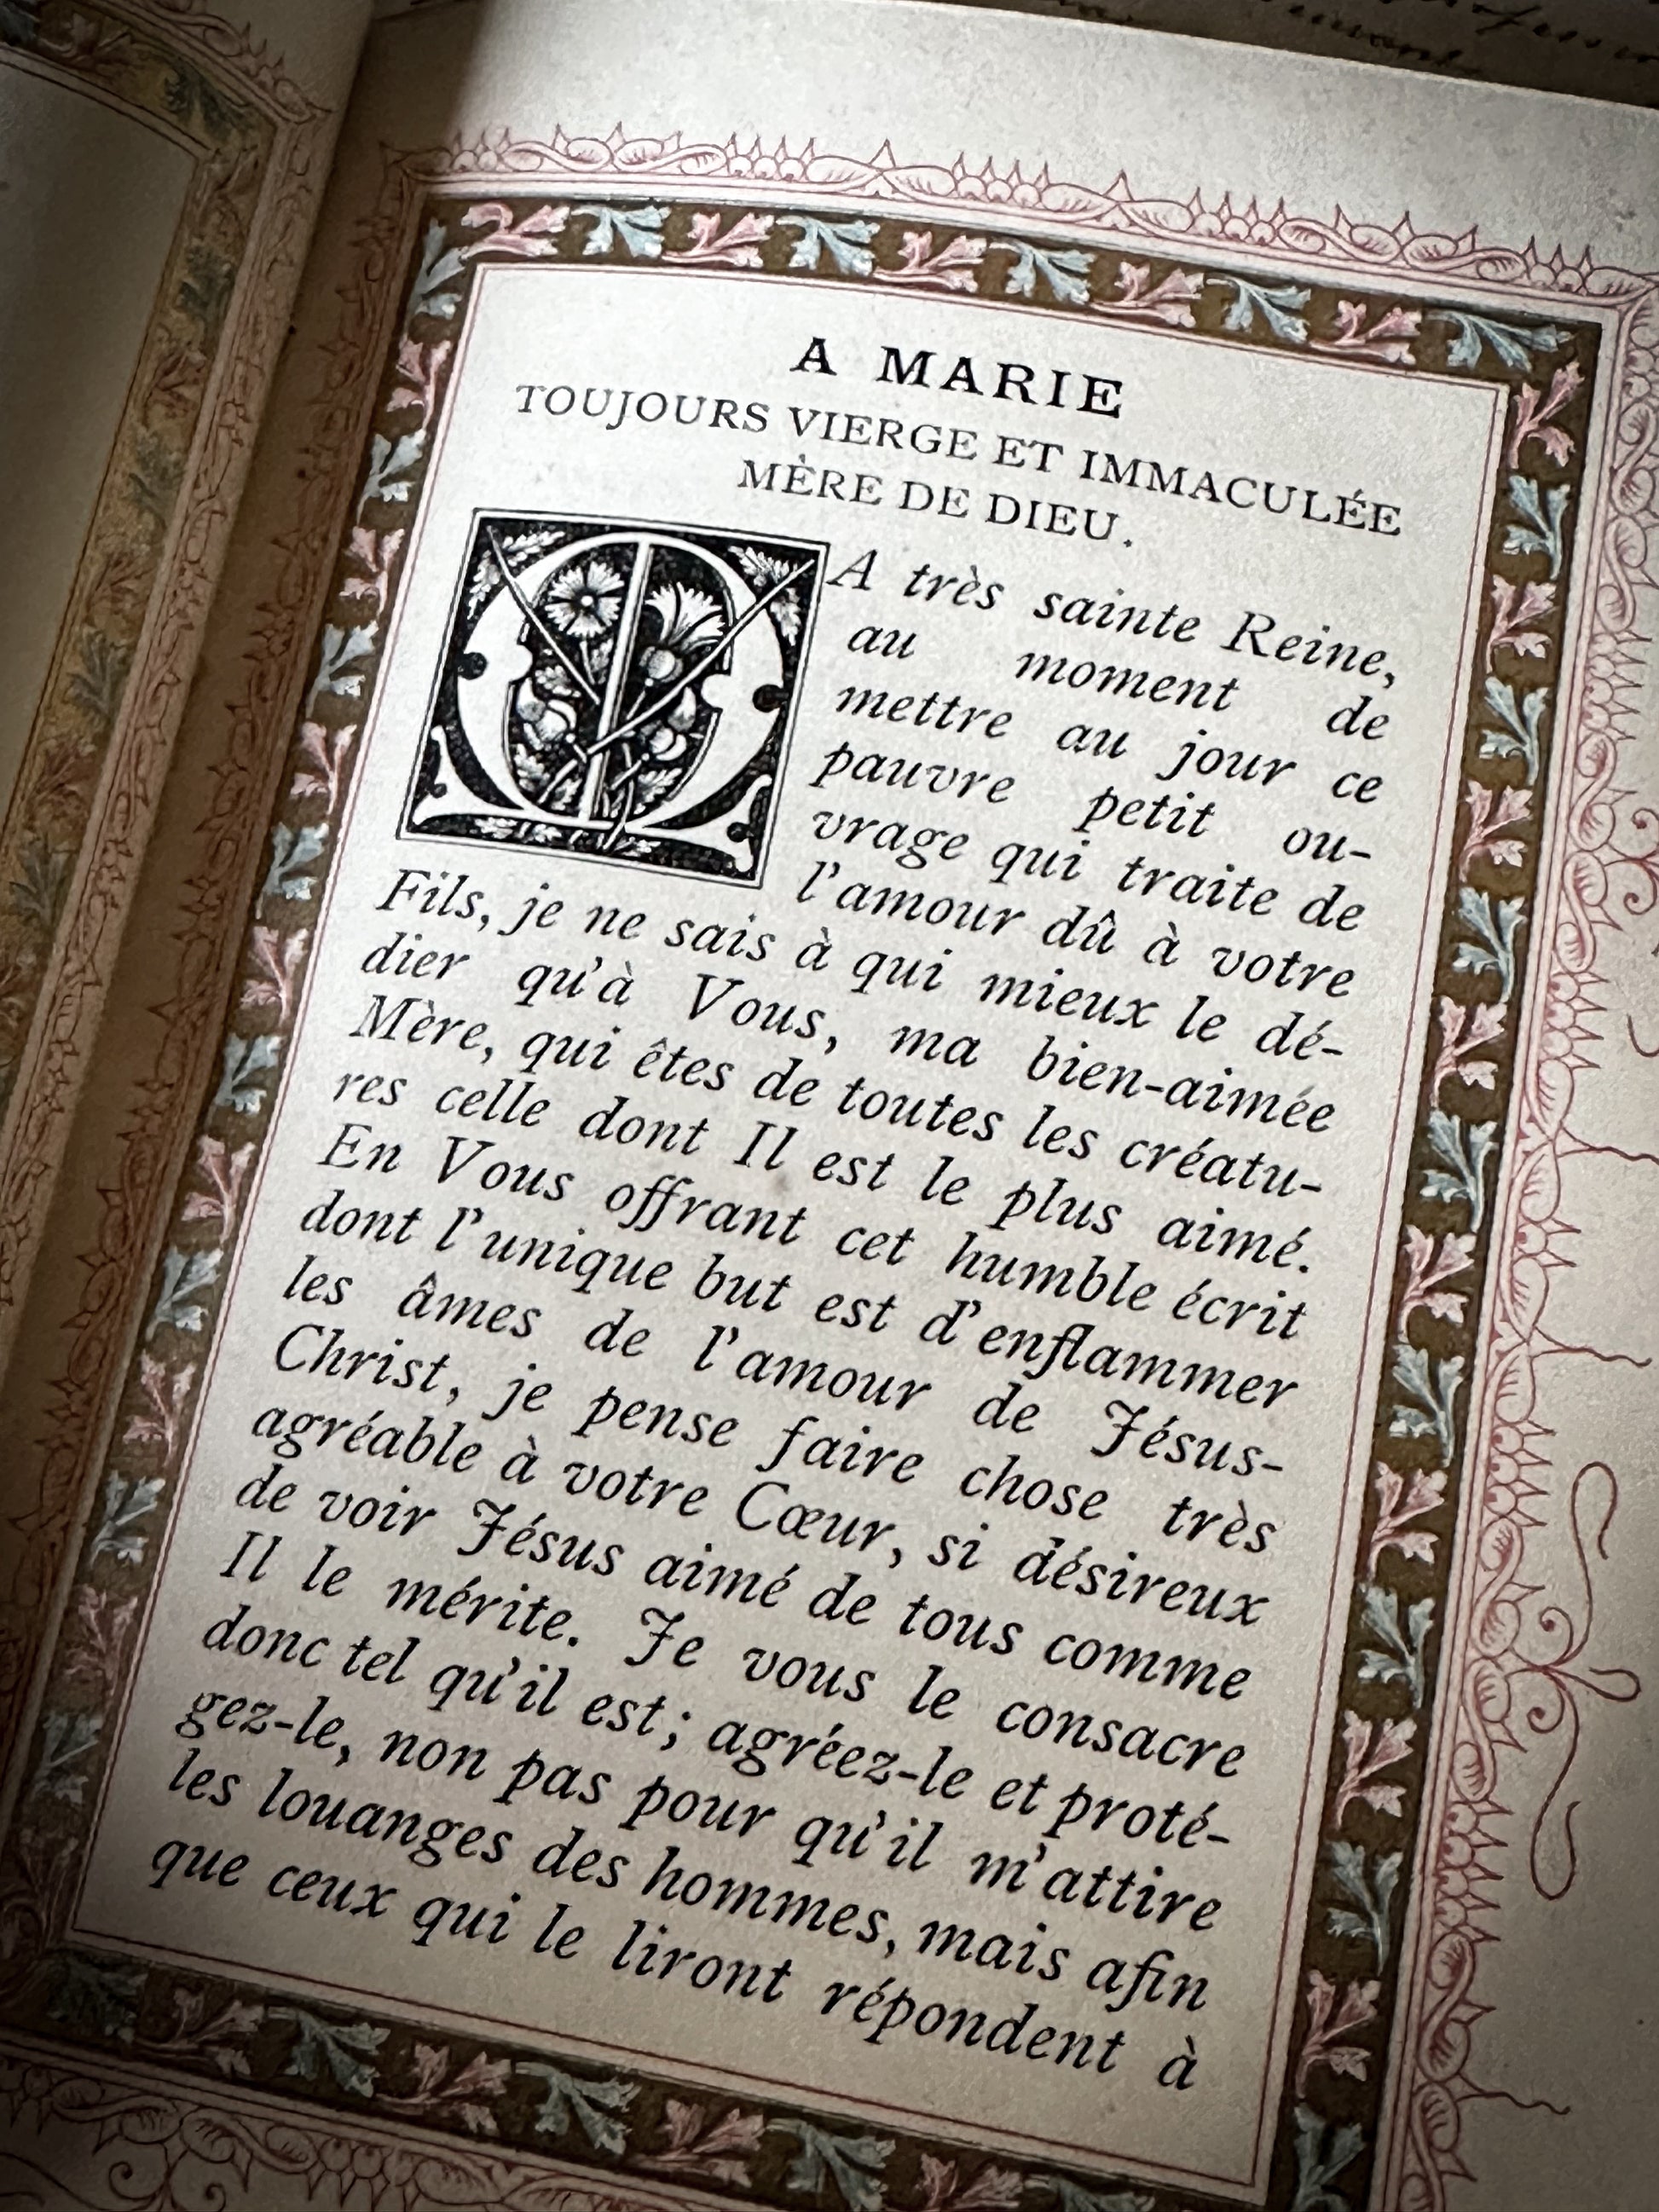 A MARIE
TOUJOURS VIERGE ET IMMACULÉE
MÈRE DE DIEU.
MA très sainte Reine,
au moment de
mettre au jour ce
pauvre petit ou-
vrage qui traite de
l'amour dû à votre
Fils, je ne sais à qui mieux le dé-
dier qu'à Vous, ma bien-aimée
Mère, qui êtes de toutes les créatu-
res celle dont Il est le plus aimé.
En Vous offrant cet humble écrit
dont l'unique but est d'enflammer
les âmes de l'amour de Jésus-
Christ, je pense faire chose très
agréable à votre Cœur, si désireux
de voir Jésus aimé de tous comme
Il le mérite. Je vous le consacre
donc tel qu'il est; agréez-le et proté-
gez-le, non pas pour qu'il m'attire
les louanges des hommes, mais afin
que ceux qui le liront répondent à